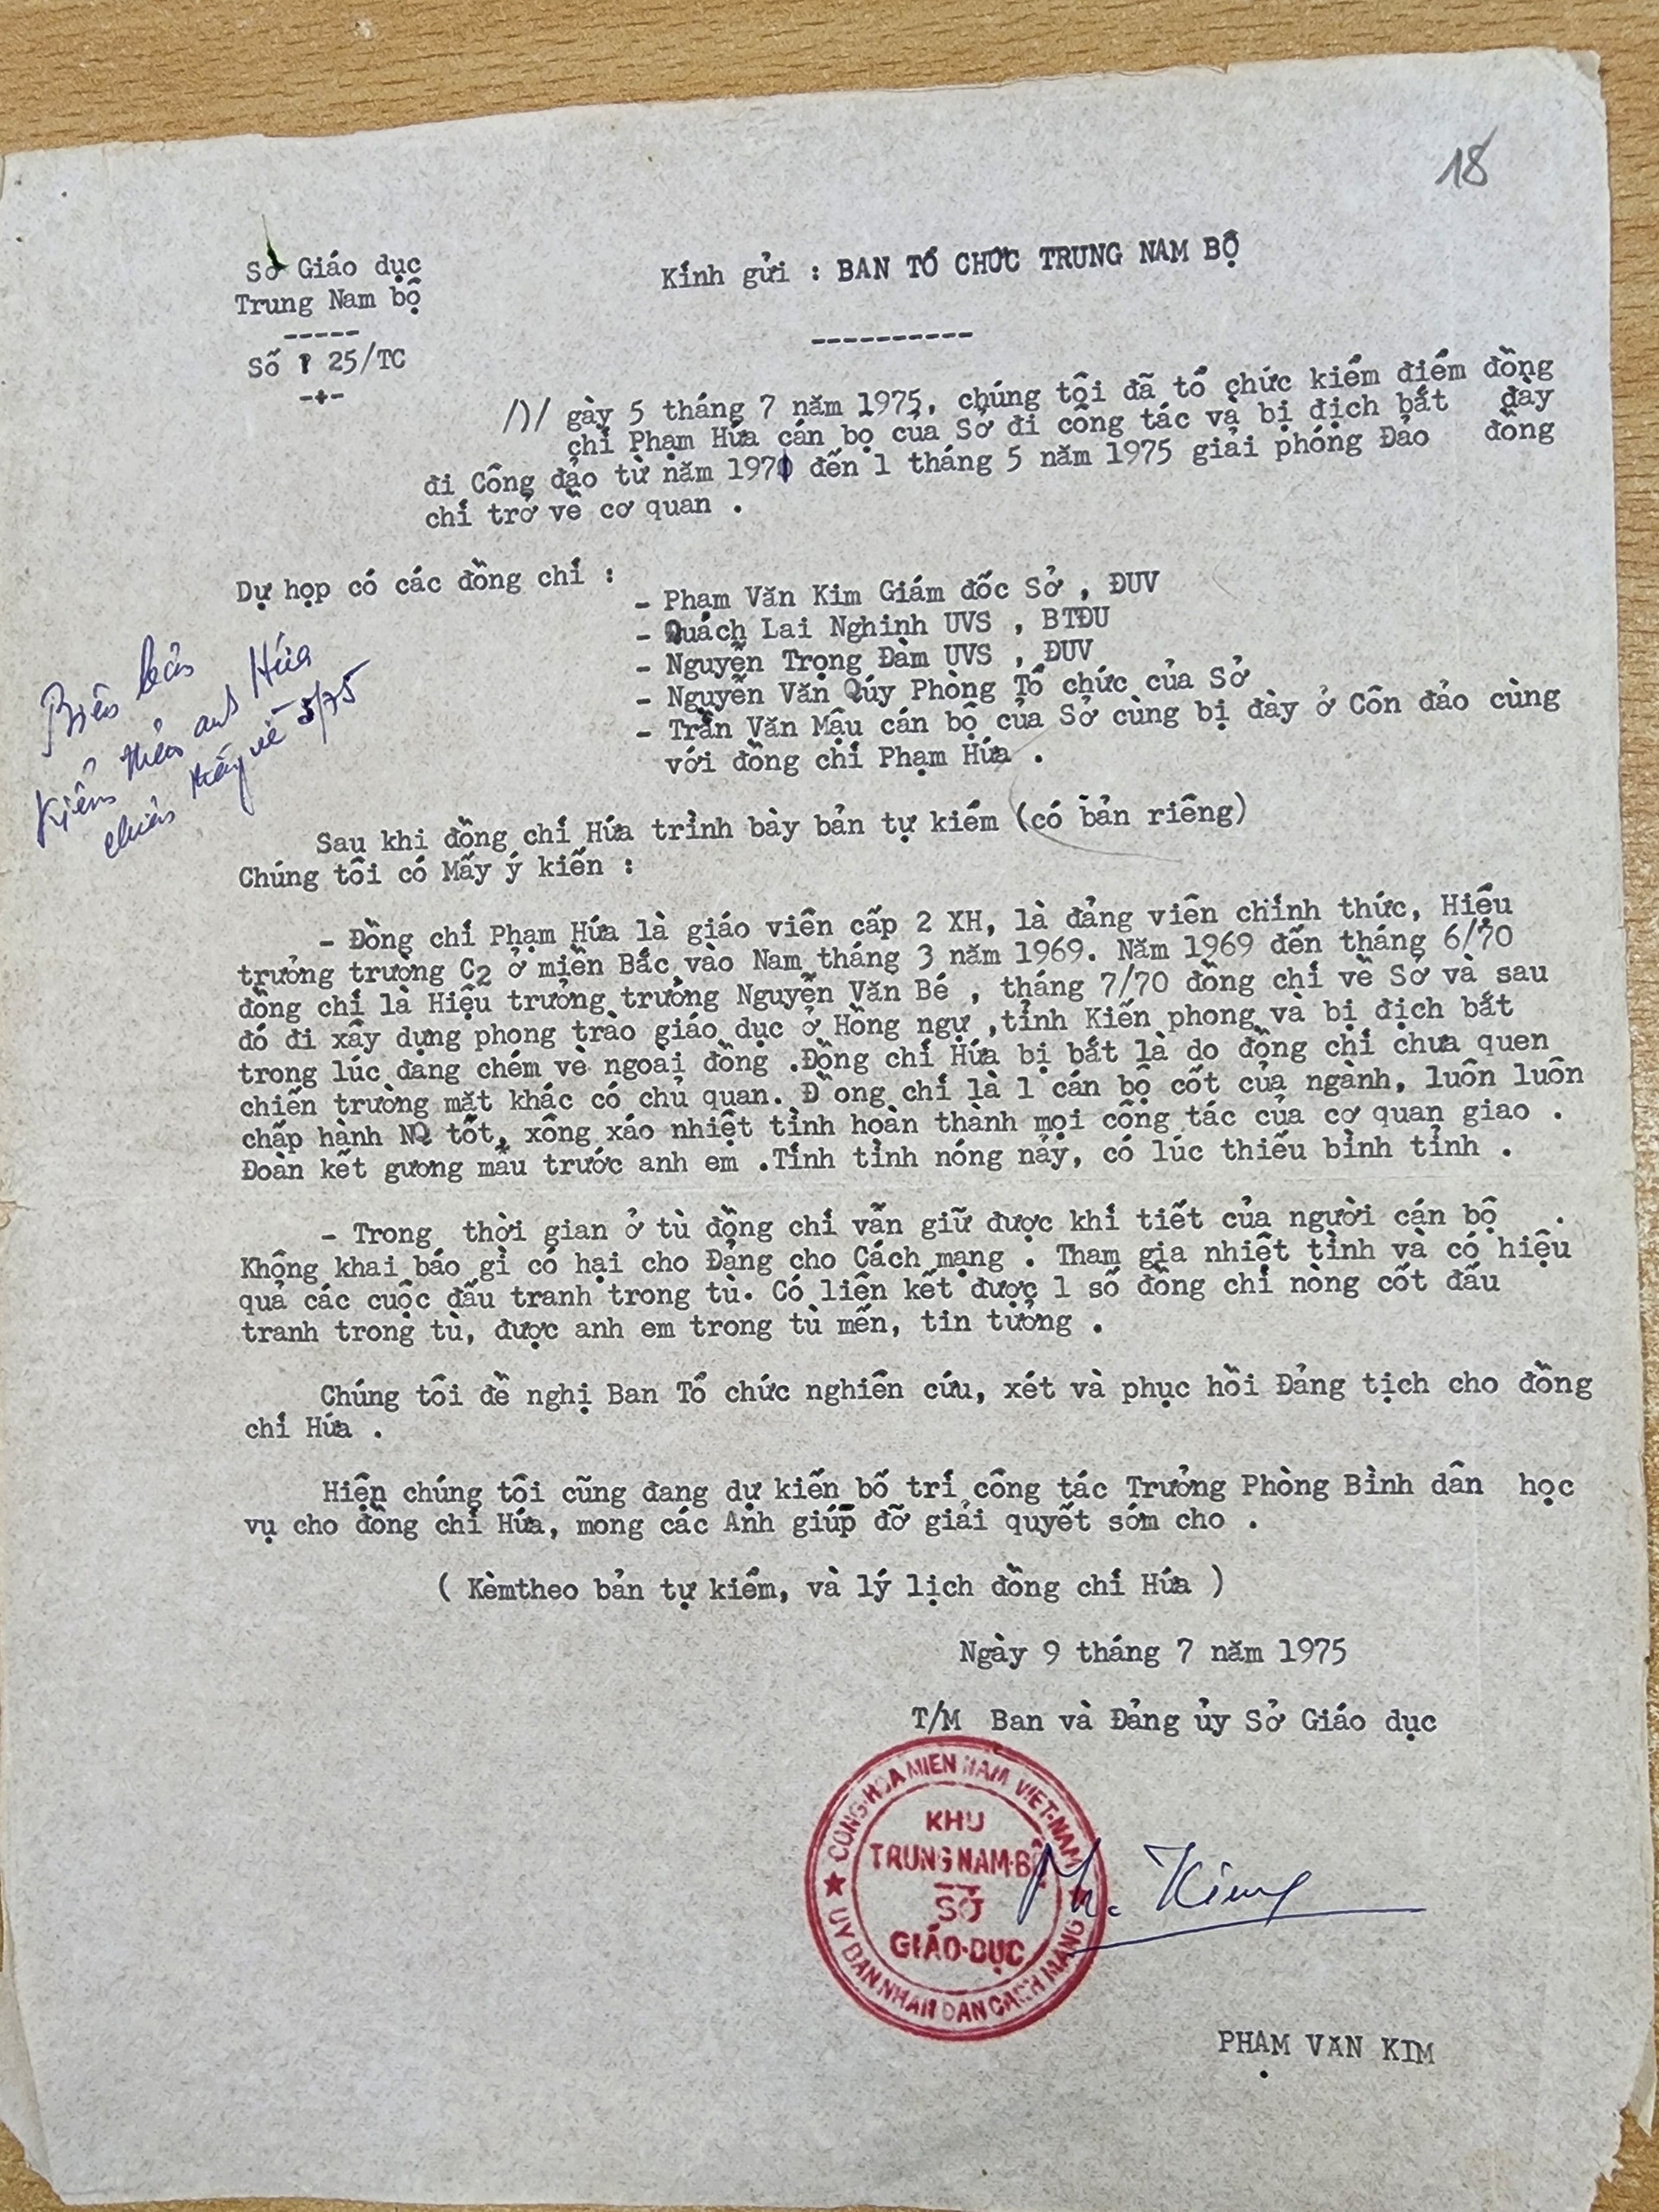 18
Sở Giáo dục
Trung Nam bộ
-----
Số 25/TC
-+-
Kính gửi : BAN TỔ CHỨC TRUNG NAM BỘ
-----------
/)/ gày 5 tháng 7 năm 1975, chúng tôi đã tổ chức kiểm điểm đồng
chí Phạm Hứa cán bọ của Sở đi công tác và bị địch bắt đày
đi Công đảo từ năm 1970 đến 1 tháng 5 năm 1975 giải phóng Đảo đồng
chí trở về cơ quan .
Dự họp có các đồng chí :
- Phạm Văn Kim Giám đốc Sở , ĐUV
- Quách Lai Nghinh UVS , BTĐU
- Nguyễn Trọng Đàm UVS , ĐUV
- Nguyễn Văn Qúy Phòng Tổ chức của Sở
- Trần Văn Mậu cán bộ của Sở cùng bị đày ở Côn đảo cùng
với đồng chí Phạm Hứa .
Biên bản
Kiểm thảo anh Hứa
chiến thắng về 5/75
Sau khi đồng chí Hứa trình bày bản tự kiểm (có bản riêng)
Chúng tôi có Mấy ý kiến :
- Đồng chí Phạm Hứa là giáo viên cấp 2 XH, là đảng viên chính thức, Hiệu
trưởng trường C2 ở miền Bắc vào Nam tháng 3 năm 1969. Năm 1969 đến tháng 6/70
đồng chí là Hiệu trưởng trường Nguyễn Văn Bé , tháng 7/70 đồng chí về Sở và sau
đó đi xây dựng phong trào giáo dục ở Hồng ngự ,tỉnh Kiến phong và bị địch bắt
trong lúc đang chém vè ngoài đồng .Đồng chí Hứa bị bắt là do đồng chí chưa quen
chiến trường mặt khác có chủ quan. Đ ong chí là 1 cán bộ cốt của ngành, luôn luôn
chấp hành NQ tốt, xông xáo nhiệt tình hoàn thành mọi công tác của cơ quan giao .
Đoàn kết gương mẫu trước anh em .Tính tình nóng nảy, có lúc thiếu bình tỉnh .
- Trong thời gian ở tù đồng chí vẫn giữ được khí tiết của người cán bộ .
Không khai báo gì có hại cho Đảng cho Cách mạng . Tham gia nhiệt tình và có hiệu
quả các cuộc đấu tranh trong tù. Có liên kết được 1 số đồng chí nòng cốt đấu
tranh trong tù, được anh em trong tù mến, tin tưởng .
Chúng tôi đề nghị Ban Tổ chức nghiên cứu, xét và phục hồi Đảng tịch cho đồng
chí Hứa .
Hiện chúng tôi cũng đang dự kiến bố trí công tác Trưởng Phòng Bình dân học
vụ cho đồng chí Hứa, mong các Anh giúp đỡ giải quyết sớm cho .
( Kèmtheo bản tự kiểm, và lý lịch đồng chí Hứa )
Ngày 9 tháng 7 năm 1975
T/M Ban và Đảng ủy Sở Giáo dục
CỘNG HÒA MIỀN NAM VIỆT-NAM
KHU
TRUNG NAM-BỘ
SỞ
GIÁO-DỤC
ỦY BAN NHÂN DÂN CÁCH MẠNG
Ph. Kim
PHẠM VĂN KIM